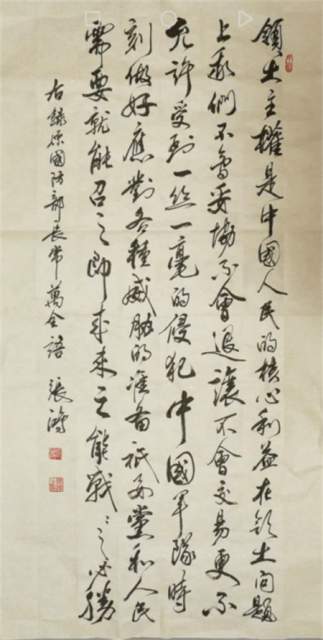 領土主權是中國人民的核心利益在領土問題
上我們不會妥協不會退讓不會交易更不
允許受到一丝一毫的侵犯中國軍隊時
刻做好應對各種威脅的准备祇要黨和人民
需要就能召之即来来之能戰〻之必勝
右錄原國防部長常萬全語 張鴻